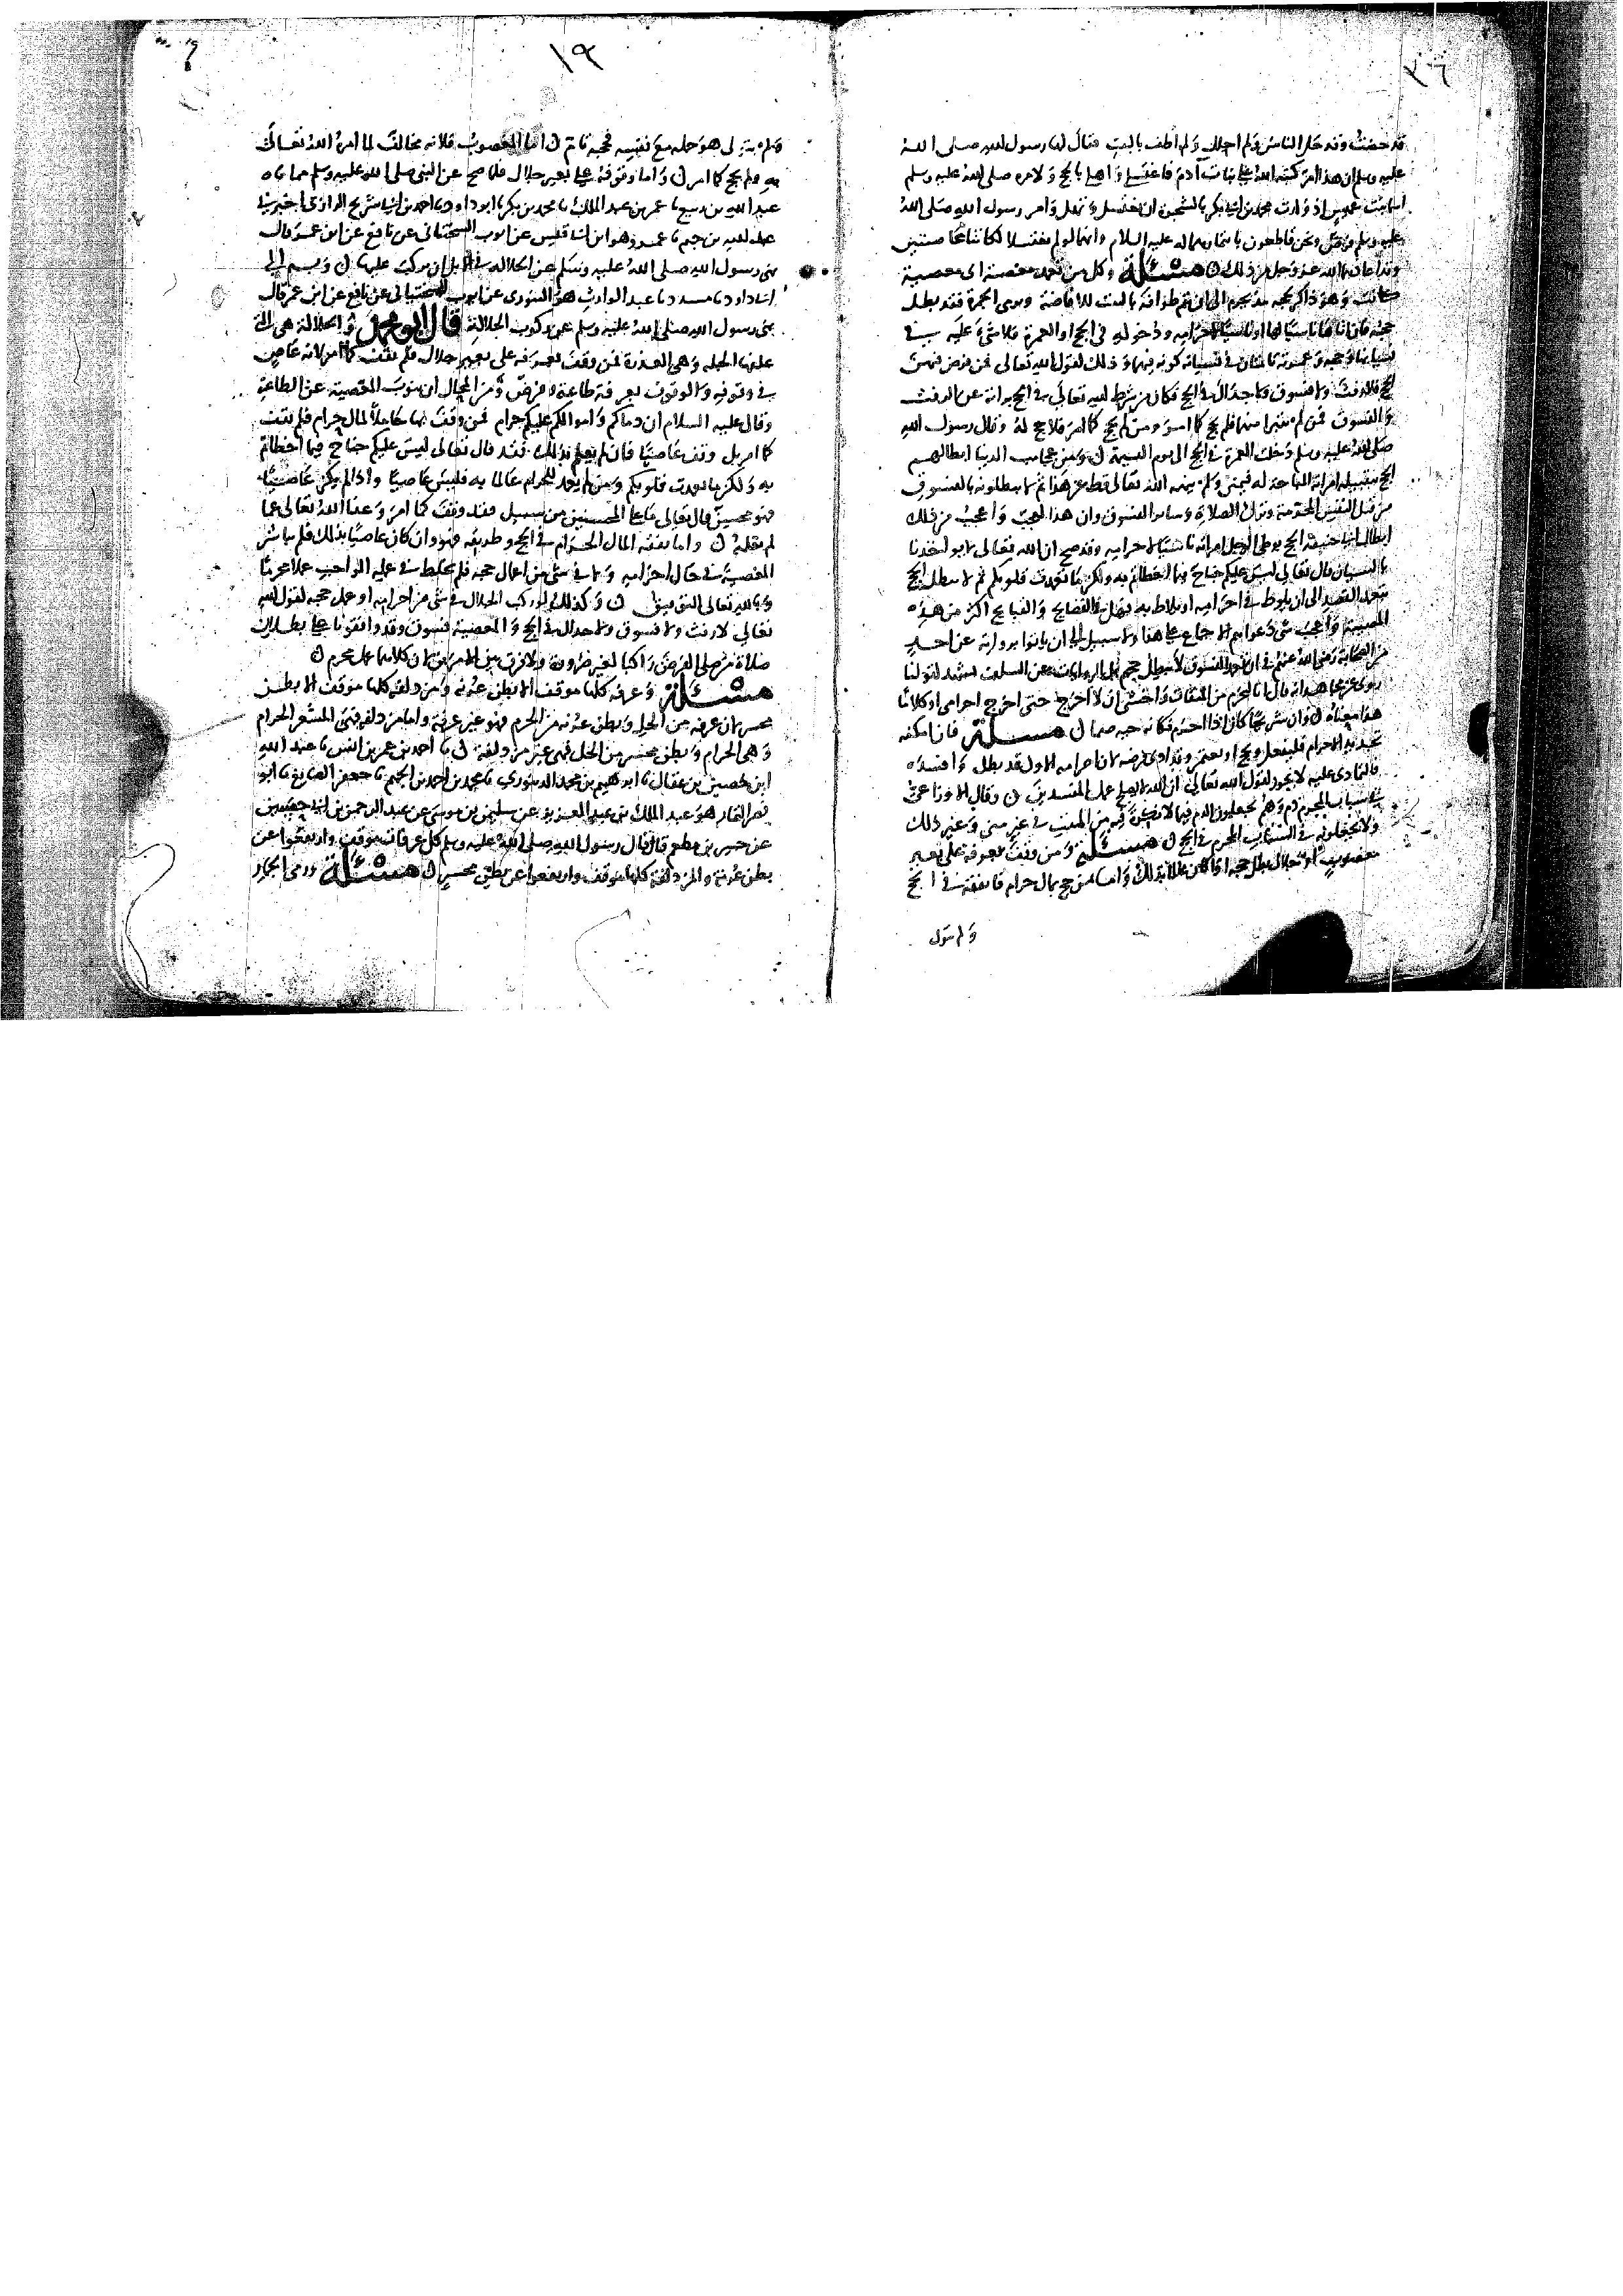 قد حضت وقد حل الناس ولم احلل ولم اطف بالبيت فقال لها رسول الله صلى الله
عليه وسلم ان هذا امر كتبه الله على بنات آدم فاغتسلي واهلي بالحج ولامره صلى الله عليه وسلم
اسما بنت عميس اذ ولدت محمد بن ابي بكر بالشجرة ان تغتسل وتهل وامر رسول الله صلى الله
عليه وسلم فرض ونحن قاطعون بايتمارهما له عليه السلام وانهما لو لم يغتسلا لكانتا عاصيتين
وقد اعاذهما الله عز وجل من ذلك ن مسئلة وكل من تعمد معصية اي معصية
كانت وهو ذاكر لحجه مذ يحرم الى ان يتم طوافه بالبيت للافاضة ويرمي الجمرة فقد بطل
حجه فان اتاها ناسيا لها او ناسيا لاحرامه ودخوله في الحج او العمرة فلا شيء عليه في
نسيانها وحجه وعمرته تامان في نسيانه كونه فيهما وذلك لقول الله تعالى فمن فرض فيهن
الحج فلا رفث ولا فسوق ولا جدال في الحج فكان من شرط الله تعالى في الحج براته من الرفث
والفسوق فمن لم يتبرا منهما فلم يحج كما امر ومن لم يحج كما امر فلا حج له وقال رسول الله
صلى الله عليه وسلم دخلت العمرة في الحج الى يوم القيمة ن ومن عجايب الدنيا ابطالهم
الحج بتقبيله امراته المباحة له فيمني ولم ينهه الله تعالى قط عن هذا ثم لا يبطلونه بالفسوق
من قتل النفس المحرمة وترك الصلاة وساير الفسوق وان هذا لعجب واعجب من ذلك
ابطال ابي حنيفة الحج بوطي الرجل امراته ناسيا لاحرامه وقد صح ان الله تعالى لا يواخذنا
بالنسيان قال تعالى ليس عليكم جناح فيما اخطاتم به ولكن ما تعمدت قلوبكم ثم لا يبطل الحج
بتعمد القصد الى ان يلوط في احرامه او يلاط به فهل في الفضايح والقبايح اكثر من هذه
المصيبة واعجب شي دعواهم الاجماع على هذا ولا سبيل الى ان ياتوا برواية عن احد
من الصحابة رضي الله عنهم في ان تعمد الفسوق لا يبطل الحج
هذا معناه ن وان شريحا كان اذا احرم فكانه حية صما ن مسئلة فان امكنه
تجديد الاحرام فليفعل ويحج او يعتمر وقد ادى فرضه لان احرامه الاول قد بطل وافسده
فالتمادي عليه لا يجوز لقول الله تعالى ان الله لا يصلح عمل المفسدين ن وقال الاوزاعي
في سباب المحرم دم وهم يجعلون الدم فيما لا يكره فيه من المبيت في غير منى وغير ذلك
ولا يجعلونه في السباب المحرم في الحج ن مسئلة ومن وقف بعرفة على بعير
مغصوب او جلال بطل حجه اذا كان عالما بذلك واما من حج بمال حرام فانفقه في الحج
ولم يتول
١٩
ولم يتول هو حمله مع نفسه فحجه تام ن اما المغصوب فلانه مخالف لما امره الله تعالى
به فلم يحج كما امر ن واما وقوفه على بعير جلال فلما صح عن النبي صلى الله عليه وسلم مما ناه
عبد الله بن ربيع نا عمر بن عبد الملك نا محمد بن بكر نا ابو داود نا احمد بن ابي سريج الرازي اخبرني
عبد الله بن جهم نا عمرو هو ابن ابي قيس عن ايوب السختياني عن نافع عن ابن عمر قال
نهى رسول الله صلى الله عليه وسلم عن الجلالة في الابل ان يركب عليها ن وبه الى
ابي داود نا مسدد نا عبد الوارث هو التنوري عن ايوب السختياني عن نافع عن ابن عمر قال
نهى رسول الله صلى الله عليه وسلم عن ركوب الجلالة قال ابو محمد والجلالة هي التي
علفها الجلة وهي العذرة فمن وقف بعرفة على بعير جلال فلم يقف كما امر لانه عاص
في وقوفه والوقوف بعرفة طاعة وفرض ومن المحال ان ينوب المعصية عن الطاعة
وقال عليه السلام ان دماكم واموالكم عليكم حرام فمن وقف بها حاملا لمال حرام فلم يقف
كما امر بل وقف عاصيا فان لم يعلم بذلك فقد قال تعالى ليس عليكم جناح فيما اخطاتم
به ولكن ما تعمدت قلوبكم ومن لم يعمد الحرام عالما به فليس عاصيا واذا لم يكن عاصيا
فهو محسن قال تعالى ما على المحسنين من سبيل فقد وقف كما امر وعفا الله تعالى عما
لم يعلمه ن واما نفقة المال الحرام في الحج وطريقه فهو وان كان عاصيا بذلك فلم يباشر
المعصية في حال احرامه ولا في شي من اعمال حجه فلم يخلط في عمله الواجب عملا محرما
وبالله تعالى التوفيق ن وكذلك لو ركب الجلال في شي من احرامه او عمل حجه لقول الله
تعالى لا رفث ولا فسوق ولا جدال في الحج والمعصية فسوق وقد وافقونا على بطلان
صلاة من صلى الفرض راكبا لغير ضرورة ولا فرق بين الامرين لان كلاهما عمل محرم ن
مسئلة وعرفة كلها موقف الا بطن عرنة ومزدلفة كلها موقف الا بطن
محسر لان عرفة من الحل وبطن عرنة من الحرم فهو غير عرفة واما مزدلفة فهي المشعر الحرام
وهي الحرام وبطن محسر من الحل فهي غير مزدلفة ن نا احمد بن عمر بن انس نا عبد الله
ابن حصين بن عقال نا ابرهيم بن محمد الدينوري نا محمد بن احمد بن الجهم نا جعفر الصايغ نا ابو
نصر التمار هو عبد الملك بن عبد العزيز عن سليمن بن موسى عن عبد الرحمن بن ابي حسين
عن جبير بن مطعم قال قال رسول الله صلى الله عليه وسلم كل عرفات موقف وارفعوا عن
بطن عرنة والمزدلفة كلها موقف وارفعوا عن بطن محسر ن مسئلة ورمي الجمار